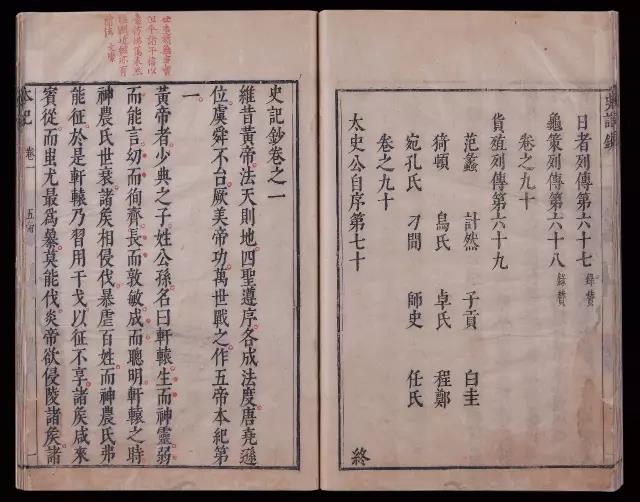 日者列傳第六十七 錄贊
龜策列傳第六十八 錄贊
卷之九十
貨殖列傳第六十九
范蠡 計然 子貢 白圭
猗頓 烏氏 卓氏 程鄭
宛孔氏 刁間 師史 任氏
卷之九十
太史公自序第七十
終
史記鈔卷之一
維昔黃帝法天則地四聖遵序各成法度唐堯遜
位虞舜不台厥美帝功萬世載之作五帝本紀第
一
黃帝者少典之子姓公孫名曰軒轅生而神靈弱
而能言幼而徇齊長而敦敏成而聰明軒轅之時
神農氏世衰諸矦相侵伐暴虐百姓而神農氏弗
能征於是軒轅乃習用干戈以征不享諸矦咸來
賓從而蚩尤最爲暴莫能伐炎帝欲侵陵諸矦諸
本紀 卷一 五帝 一